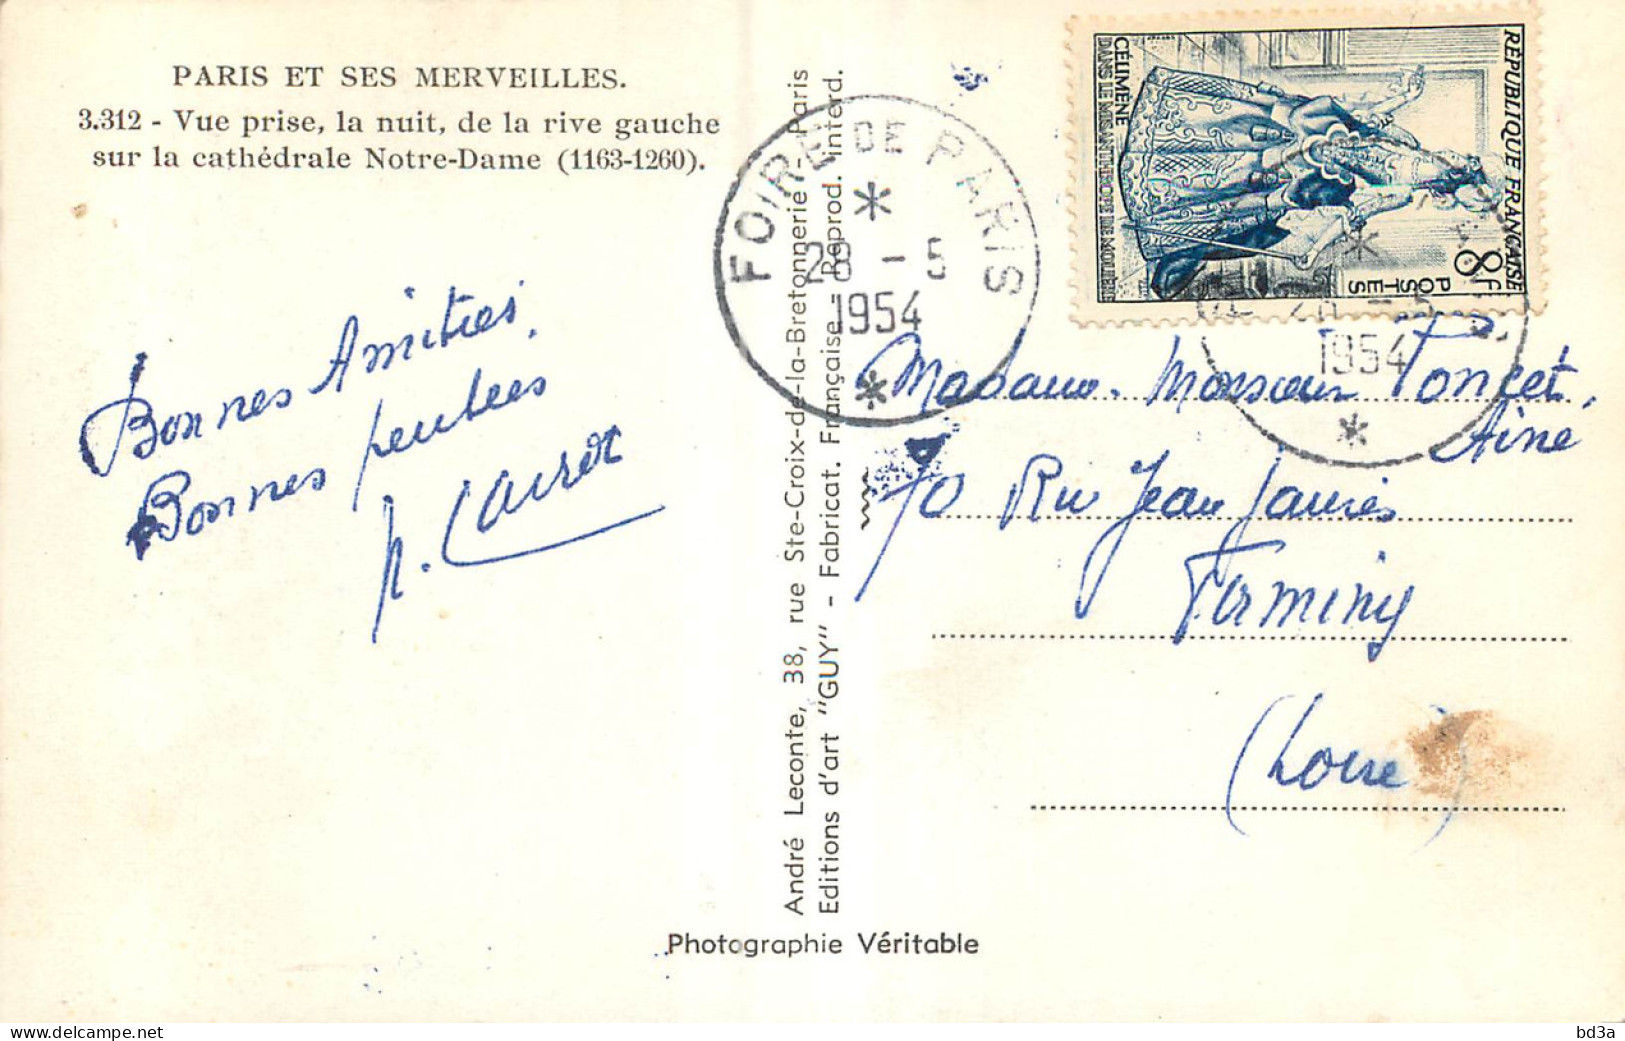 PARIS ET SES MERVEILLES.
3.312 - Vue prise, la nuit, de la rive gauche
sur la cathédrale Notre-Dame (1163-1260).
Bonnes Amitiés.
Bonnes pensées
André Leconte, 38, rue Ste-Croix-de-la-Bretonnerie - Paris
Editions d'art "GUY" - Fabricat. Française - Reprod. interd.
Photographie Véritable
FOIRE DE PARIS
28 - 5
1954
RÉPUBLIQUE FRANÇAISE
8F
POSTES
CÉLIMÈNE
DANS LE MISANTHROPE DE MOLIÈRE
28 - 5
1954
Madame. Monsieur Poncet,
Aîné
70 Rue Jean Jaurès
Firminy
(Loire)
bd3a